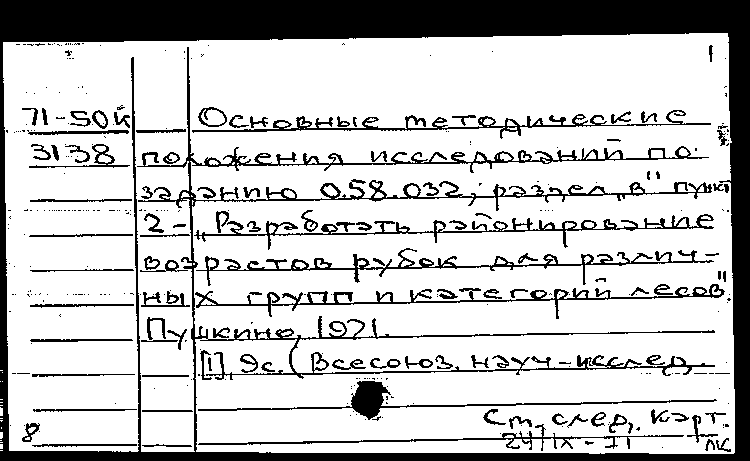 1
71-50к Основные методические
3138 положения исследований по
заданию 0.58.032, раздел „в" пункт
2 - „Разработать районирование
возрастов рубок для различ-
ных групп и категорий лесов".
Пушкино, 1971.
[1], 9с. (Всесоюз. науч-исслед.
См. след. карт.
8 24/IX-71 ЛК